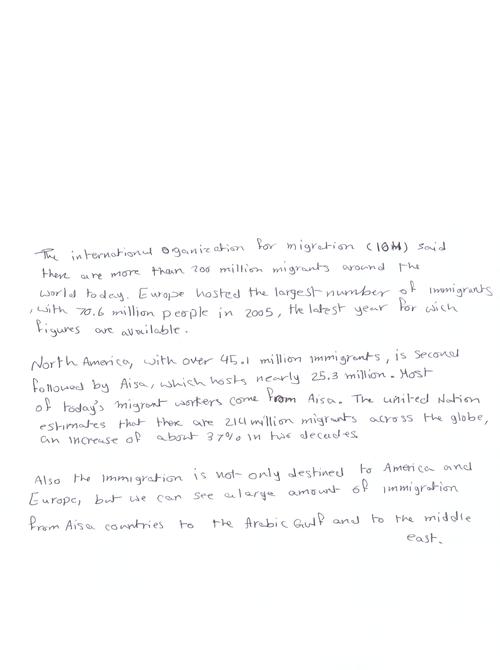 The international Oganization for migration (IOM) said
there are more than 200 million migrants around the
world today. Europe hosted the largest number of immigrants
, with 70.6 million people in 2005, the latest year for wich
figures are available.
North America, with over 45.1 million immigrants, is second
followed by Aisa, which hosts nearly 25.3 million. Most
of today's migrant workers come from Aisa. The united Nation
estimates that there are 214 million migrants across the globe,
an increase of about 37% in two decades
Also the immigration is not only destined to America and
Europe, but we can see a large amount of immigration
from Aisa countries to the Arabic Gulf and to the middle
east.